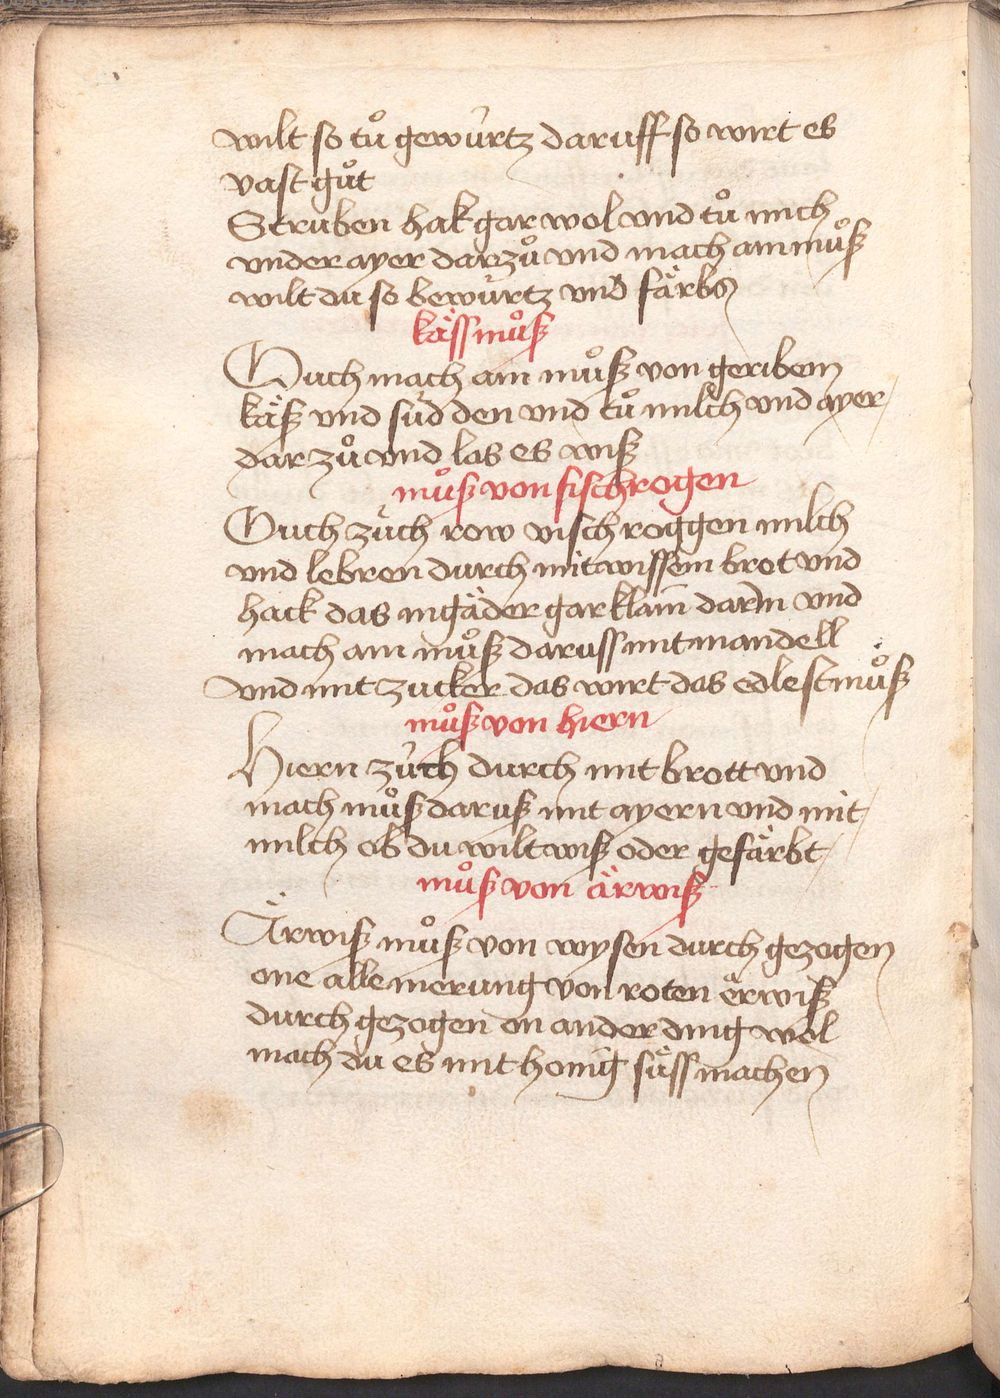 wilt so tuͦ gewürtz daruff so wirt es
vast guͦt
Struben hak gar wol vnd tuͦ mich
vnder ayer darzuͦ vnd mach ain muͦß
wilt du so bewürtz vnd färbs
käss muͦß
Ouch mach ain muͦß von geriben
käß vnd süd den vnd tuͦ milch vnd ayer
dar zuͦ vnd las es wiß
muͦß von fischrogen
Ouch züch row visch roggen milch
vnd lebren durch mit wissem brot vnd
hack das ingäder gar klain darin vnd
mach ain muͦß daruss mit mandell
vnd mit zucker das wirt das edlest muͦß
muͦß von hiern
Hiern züch durch mit brott vnd
mach muͦß daruß mit ayern vnd mit
milch ob du wilt wiß oder gefärbt
muͦß von ärwiß
Ärwiß muͦß von wysen durch gezogen
one alle merung von roten ërwiß
durch gezogen on ander ding wol
mach du es mit honig süss machen